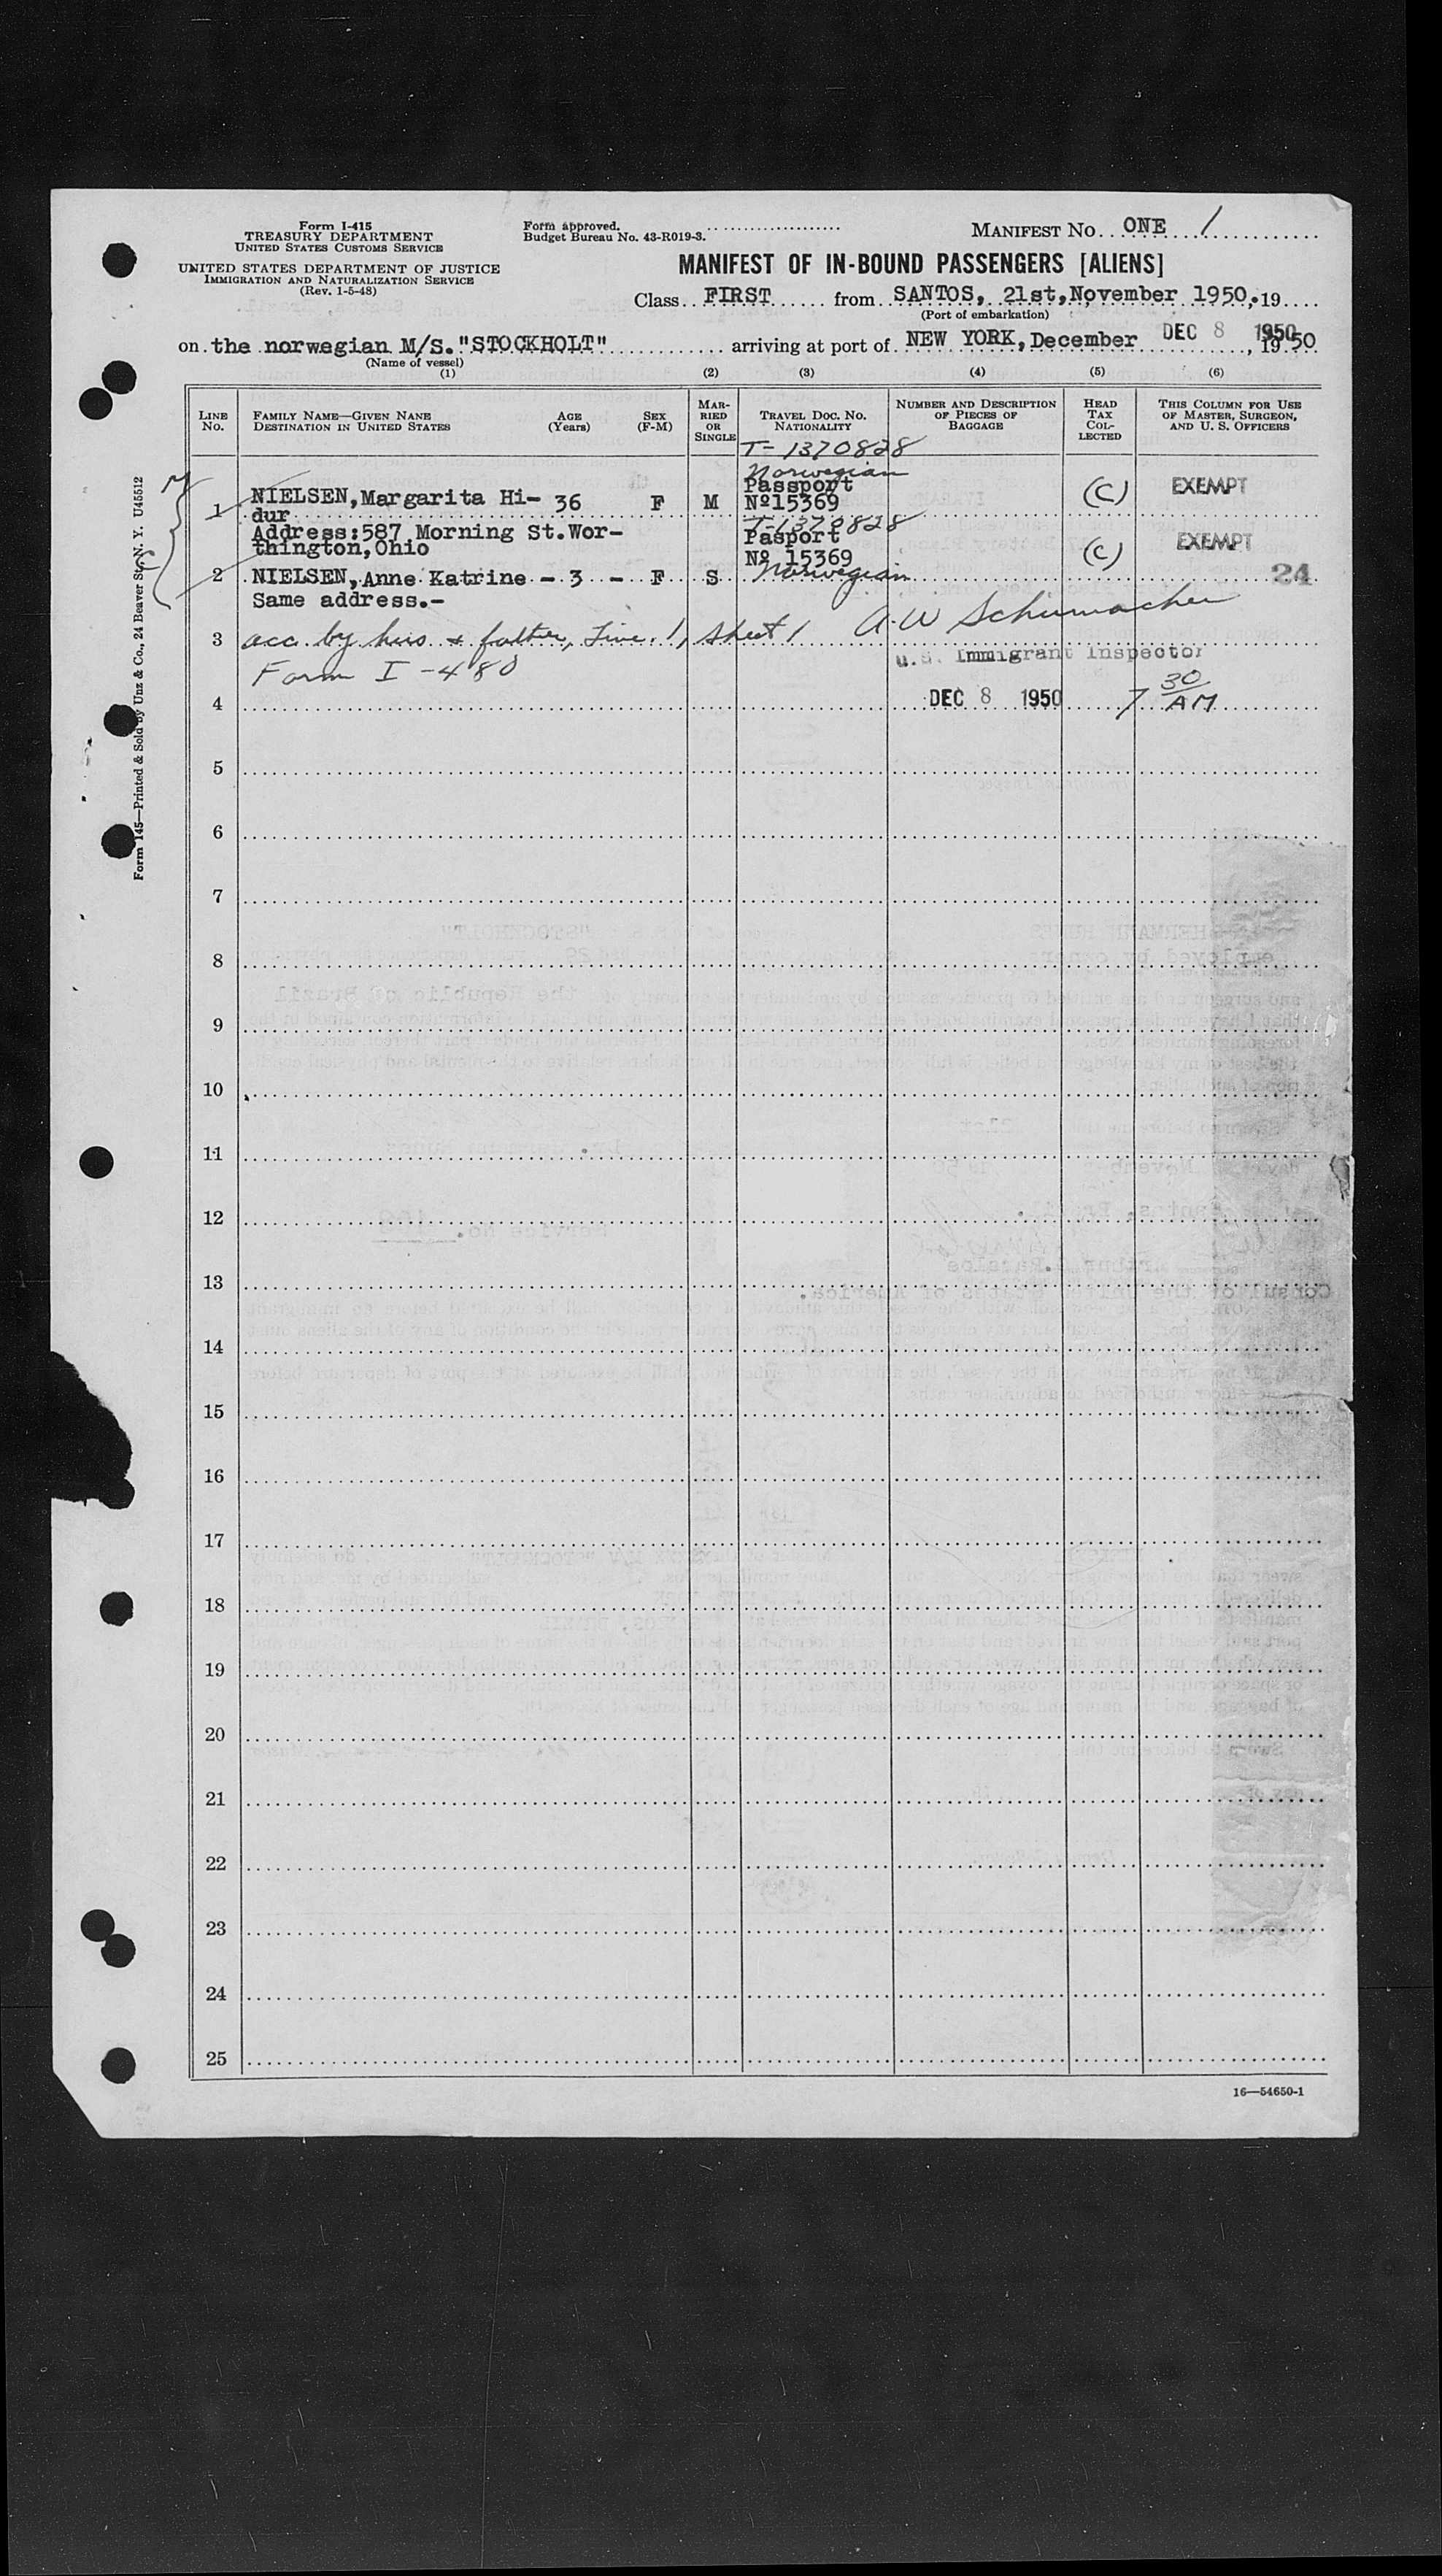 Form I-415
TREASURY DEPARTMENT
UNITED STATES CUSTOMS SERVICE
UNITED STATES DEPARTMENT OF JUSTICE
IMMIGRATION AND NATURALIZATION SERVICE
(Rev. 1-5-48)
Form approved.
Budget Bureau No. 43-R019-3.
MANIFEST No. ONE 1
MANIFEST OF IN-BOUND PASSENGERS [ALIENS]
Class FIRST from SANTOS, 21st, November 1950. 19
(Port of embarkation)
on the norwegian M/S. "STOCKHOLT" arriving at port of NEW YORK, December DEC 8 1950, 1950
(Name of vessel)
(1) (2) (3) (4) (5) (6)
LINE No. FAMILY NAME—GIVEN NANE DESTINATION IN UNITED STATES AGE (Years) SEX (F-M) MARRIED OR SINGLE TRAVEL DOC. NO. NATIONALITY NUMBER AND DESCRIPTION OF PIECES OF BAGGAGE HEAD TAX COLLECTED THIS COLUMN FOR USE OF MASTER, SURGEON, AND U. S. OFFICERS
T-1370828
Norwegian
Passport
1 NIELSEN, Margarita Hi- 36 F M Nº15369 (C) EXEMPT
dur
T-1370828
Address:587 Morning St.Wor- Pasport
thington, Ohio Nº 15369 (C) EXEMPT
2 NIELSEN, Anne Katrine - 3 - F S Norwegian 24
Same address.-
3 acc. by hus. & father, Line 1, Sheet 1 A.W Schumacher
U.S. Immigrant Inspector
Form I-480
4 DEC 8 1950 7 30 AM
5
6
7
8
9
10
11
12
13
14
15
16
17
18
19
20
21
22
23
24
25
16—54650-1
Form 145—Printed & Sold by Unz & Co., 24 Beaver St., N. Y. U45512